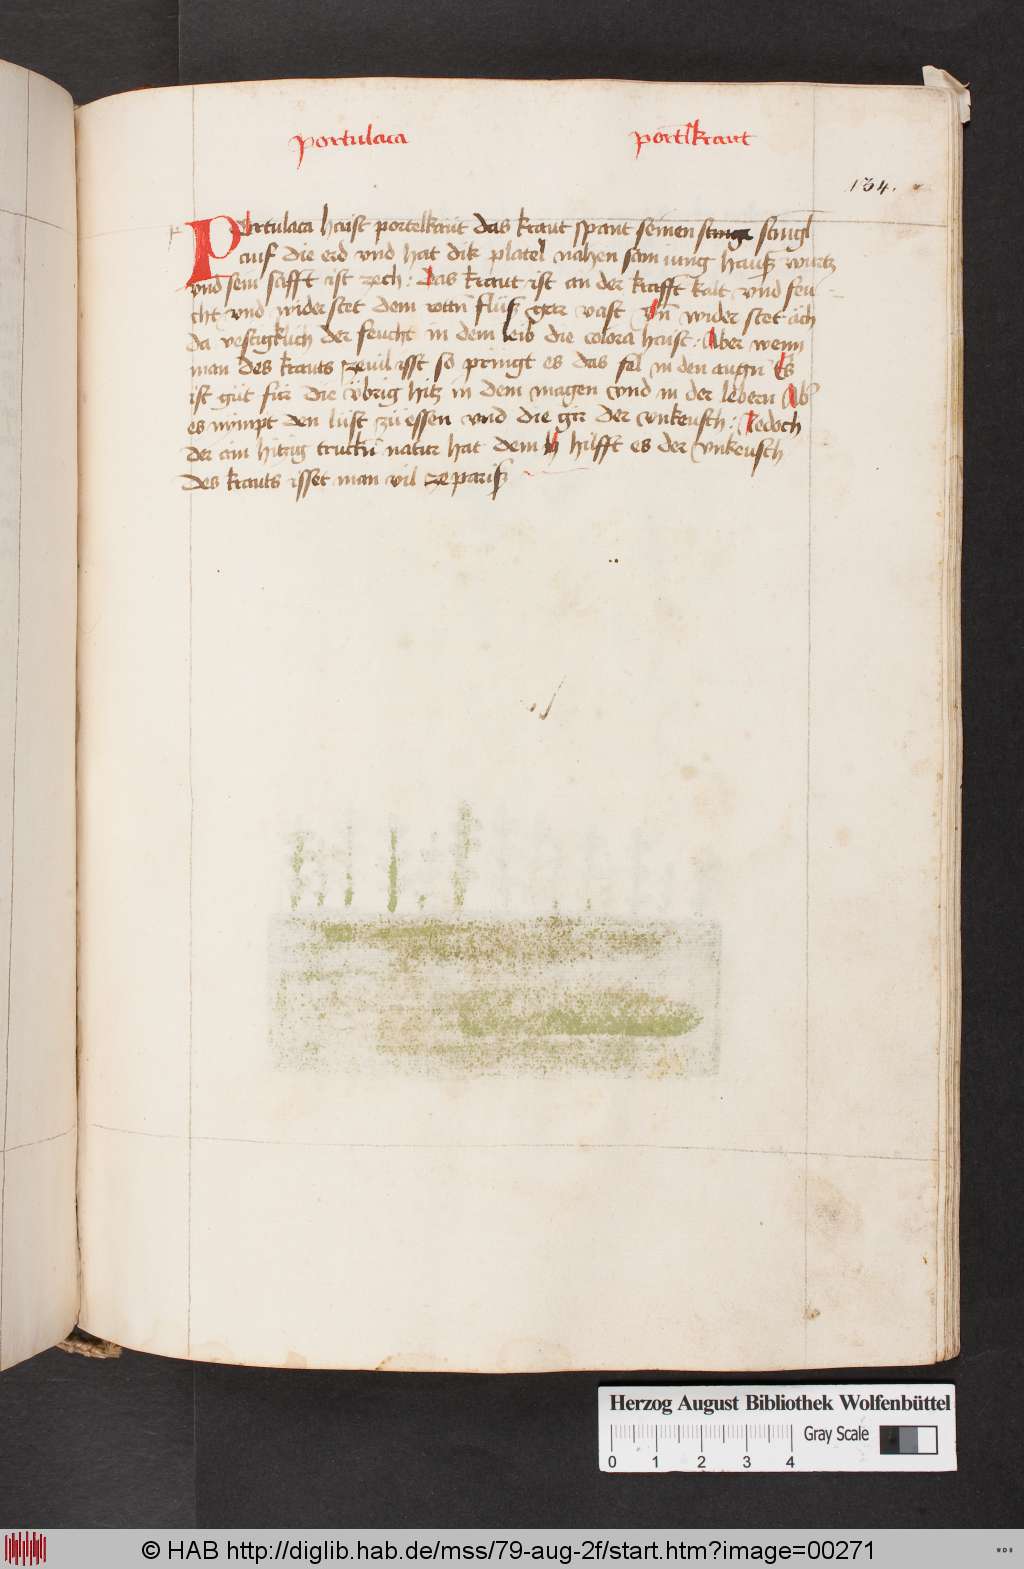 portulaca portlkraut
134.
Portulaca haist portelkraut das kraut spant seinen stingl
auf die erd vnd hat dik pletel nahen sam iung hausz wurtz
vnd sein safft ist zech : das kraut ist an der krafft kalt vnd feu-
cht vnd wider stet dem rotn̄ flusz gar vast vn̄ wider stet ach
da vestigklich der feucht in dem leib die colora haist : Aber wenn
man des krauts zeuil isst so pringt es das fel in den augn̄ Es
ist gut fur die vbrig hitz in dem magen vnd in der lebern Ab̾
es nympt den lust zu essen vnd die gir der vnkeusch : Iedoch
der ain hitzig truckn̄ natur hat dem hilfft es der vnkeusch
des krauts isset man vil ze parisz
Herzog August Bibliothek Wolfenbüttel
Gray Scale
0 1 2 3 4
© HAB http://diglib.hab.de/mss/79-aug-2f/start.htm?image=00271